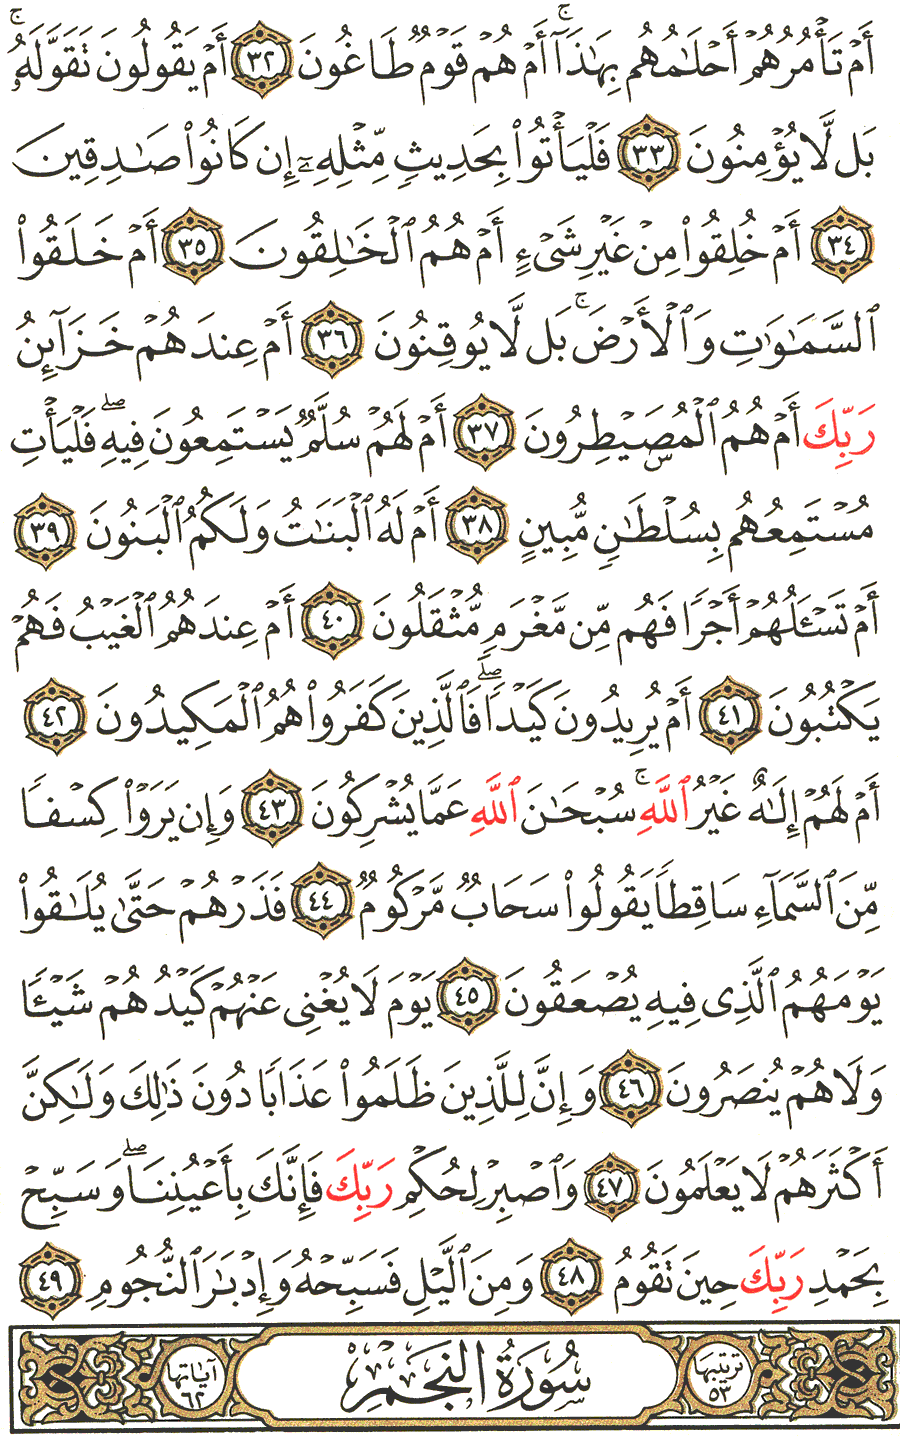 أَمْ تَأْمُرُهُمْ أَحْلَٰمُهُم بِهَٰذَآ ۚ أَمْ هُمْ قَوْمٌ طَاغُونَ ٣٢ أَمْ يَقُولُونَ تَقَوَّلَهُۥ ۚ
بَل لَّا يُؤْمِنُونَ ٣٣ فَلْيَأْتُوا۟ بِحَدِيثٍ مِّثْلِهِۦٓ إِن كَانُوا۟ صَٰدِقِينَ
٣٤ أَمْ خُلِقُوا۟ مِنْ غَيْرِ شَىْءٍ أَمْ هُمُ ٱلْخَٰلِقُونَ ٣٥ أَمْ خَلَقُوا۟
ٱلسَّمَٰوَٰتِ وَٱلْأَرْضَ ۚ بَل لَّا يُوقِنُونَ ٣٦ أَمْ عِندَهُمْ خَزَآئِنُ
رَبِّكَ أَمْ هُمُ ٱلْمُصَۣيْطِرُونَ ٣٧ أَمْ لَهُمْ سُلَّمٌ يَسْتَمِعُونَ فِيهِ ۖ فَلْيَأْتِ
مُسْتَمِعُهُم بِسُلْطَٰنٍ مُّبِينٍ ٣٨ أَمْ لَهُ ٱلْبَنَٰتُ وَلَكُمُ ٱلْبَنُونَ ٣٩
أَمْ تَسْـَٔلُهُمْ أَجْرًا فَهُم مِّن مَّغْرَمٍ مُّثْقَلُونَ ٤٠ أَمْ عِندَهُمُ ٱلْغَيْبُ فَهُمْ
يَكْتُبُونَ ٤١ أَمْ يُرِيدُونَ كَيْدًا ۖ فَٱلَّذِينَ كَفَرُوا۟ هُمُ ٱلْمَكِيدُونَ ٤٢
أَمْ لَهُمْ إِلَٰهٌ غَيْرُ ٱللَّهِ ۚ سُبْحَٰنَ ٱللَّهِ عَمَّا يُشْرِكُونَ ٤٣ وَإِن يَرَوْا۟ كِسْفًا
مِّنَ ٱلسَّمَآءِ سَاقِطًا يَقُولُوا۟ سَحَابٌ مَّرْكُومٌ ٤٤ فَذَرْهُمْ حَتَّىٰ يُلَٰقُوا۟
يَوْمَهُمُ ٱلَّذِى فِيهِ يُصْعَقُونَ ٤٥ يَوْمَ لَا يُغْنِى عَنْهُمْ كَيْدُهُمْ شَيْـًٔا
وَلَا هُمْ يُنصَرُونَ ٤٦ وَإِنَّ لِلَّذِينَ ظَلَمُوا۟ عَذَابًا دُونَ ذَٰلِكَ وَلَٰكِنَّ
أَكْثَرَهُمْ لَا يَعْلَمُونَ ٤٧ وَٱصْبِرْ لِحُكْمِ رَبِّكَ فَإِنَّكَ بِأَعْيُنِنَا ۖ وَسَبِّحْ
بِحَمْدِ رَبِّكَ حِينَ تَقُومُ ٤٨ وَمِنَ ٱلَّيْلِ فَسَبِّحْهُ وَإِدْبَٰرَ ٱلنُّجُومِ ٤٩
ترتيبها ٥٣ سُورَةُ النَّجْمِ آياتها ٦٢